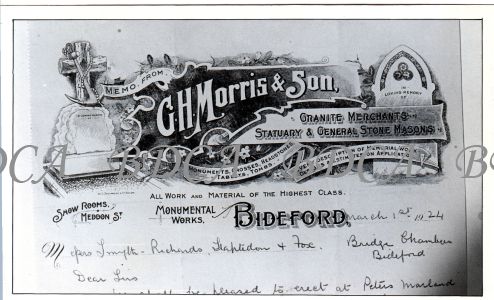 MEMO. FROM.
G.H. Morris & Son,
GRANITE MERCHANTS
STATUARY & GENERAL STONE MASONS.
IN
LOVING MEMORY
OF
MONUMENTS, CROSSES, HEADSTONES,
TABLETS, TOMBS
DESCRIPTION OF MEMORIAL WORK
ESTIMATES ON APPLICATION
BDCA BDCA BDCA
ALL WORK AND MATERIAL OF THE HIGHEST CLASS.
SHOW ROOMS,
MEDDON ST
MONUMENTAL
WORKS,
BIDEFORD,
March 1st 1924
Messrs Smyth-Richards, Stapledon & Fox
Bridge Chambers
Bideford
Dear Sirs
be pleased to erect at Peters Marland